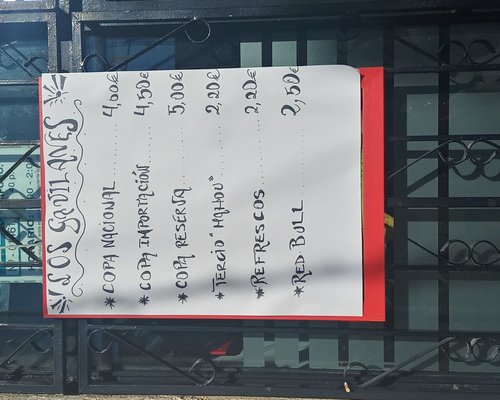 LOS GAVILANES
* COPA NACIONAL ........ 4,00€
* COPA IMPORTACIÓN ........ 4,50€
* COPA RESERVA ........ 5,00€
* TERCIO "MAHOU" ........ 2,20€
* REFRESCOS ........ 2,20€
* RED BULL ........ 2,50€